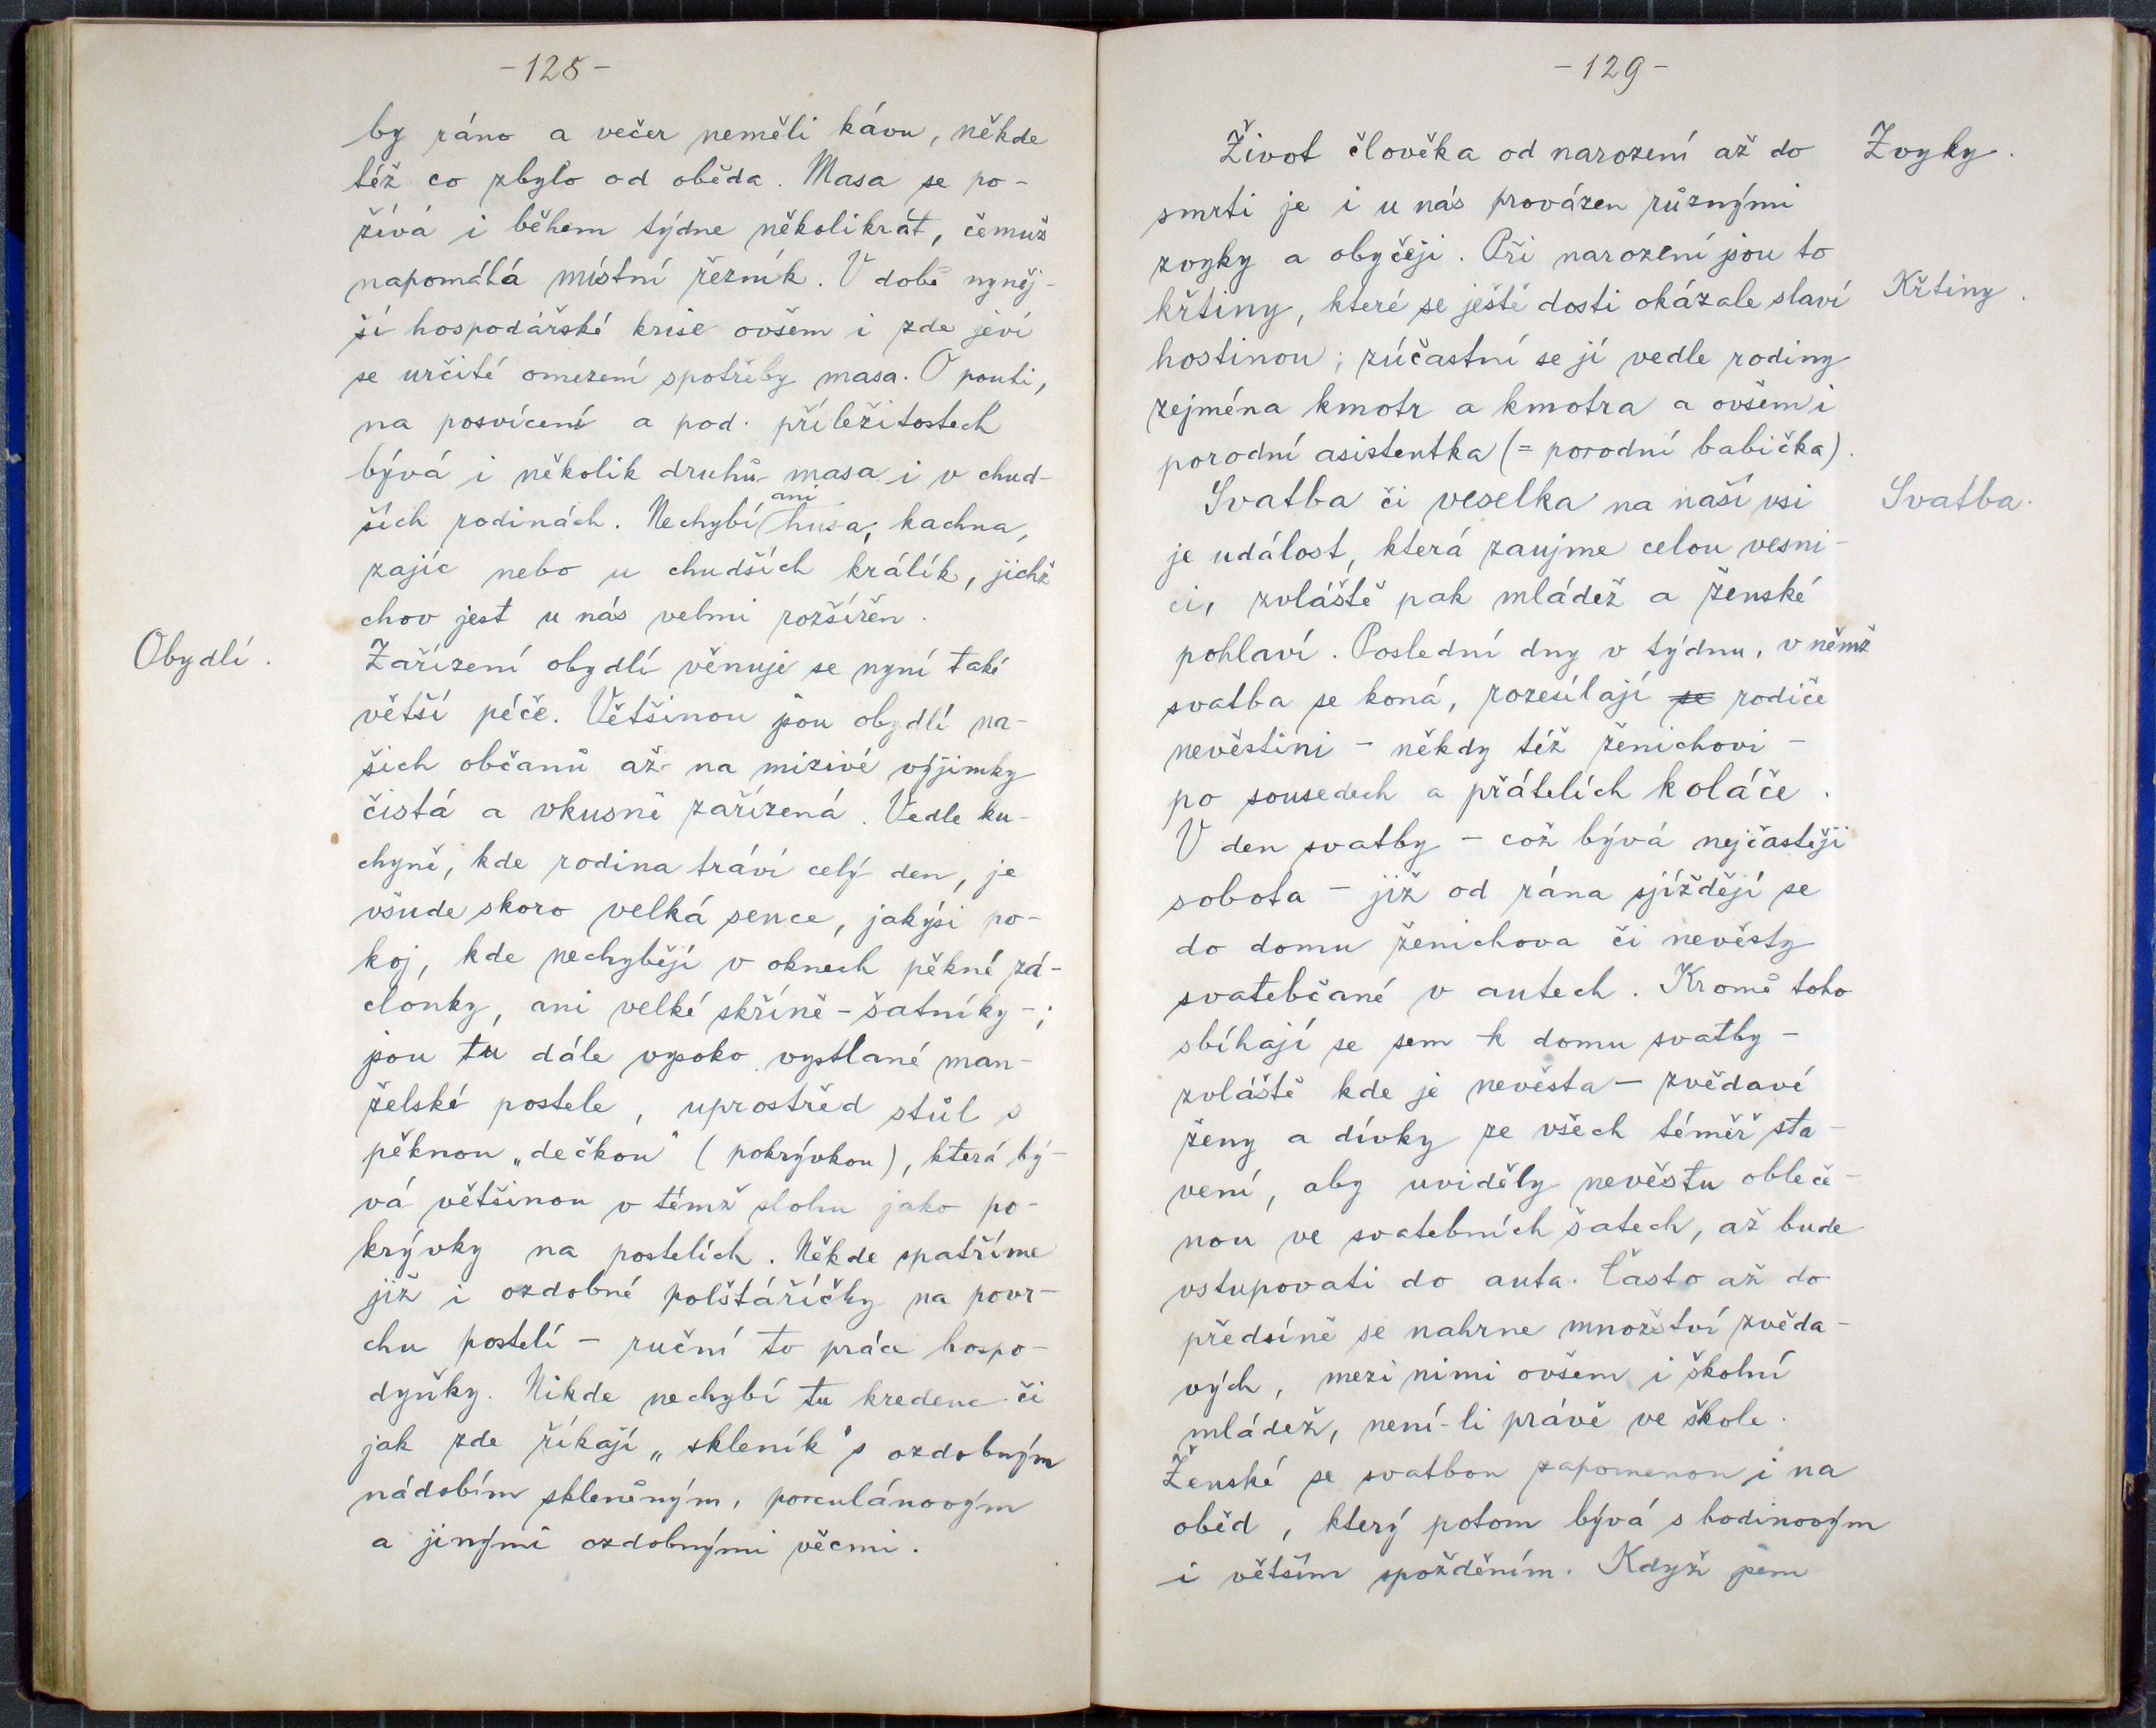 -128-
by ráno a večer neměli kávu, někde
též co zbylo od oběda. Masa se po-
žívá i během týdne několikrát, čemuž
napomáhá místní řezník. V době nyněj-
ší hospodářské krise ovšem i zde jeví
se určité omezení spotřeby masa. O pouti,
na posvícení a pod. příležitostech
bývá i několik druhů masa i v chud-
ších rodinách. Nechybí ani husa, kachna,
zajíc nebo u chudších králík, jichž
chov jest u nás velmi rozšířen.
Obydlí.
Zařízení obydlí věnuje se nyní také
větší péče. Většinou jsou obydlí na-
šich občanů až na mizivé výjimky
čistá a vkusně zařízená. Vedle ku-
chyně, kde rodina tráví celý den, je
všude skoro velká sence, jakýsi po-
koj, kde nechybějí v oknech pěkné zá-
clonky, ani velké skříně - šatníky -;
jsou tu dále vysoko vystlané man-
želské postele, uprostřed stůl s
pěknou „dečkou" (pokrývkou), která bý-
vá většinou v témž slohu jako po-
krývky na postelích. Někde spatříme
již i ozdobné polštáříčky na povr-
chu postelí - ruční to práce hospo-
dyňky. Nikde nechybí tu kredenc či
jak zde říkají „skleník" s ozdobným
nádobím skleněným, porculánovým
a jinými ozdobnými věcmi.
-129-
Zvyky.
Život člověka od narození až do
smrti je i u nás provázen různými
zvyky a obyčeji. Při narození jsou to
Křtiny.
křtiny, které se ještě dosti okázale slaví
hostinou; zúčastní se jí vedle rodiny
zejména kmotr a kmotra a ovšem i
porodní asistentka (= porodní babička).
Svatba.
Svatba či veselka na naší vsi
je událost, která zaujme celou vesni-
ci, zvláště pak mládež a ženské
pohlaví. Poslední dny v týdnu, v němž
svatba se koná, rozesílají se rodiče
nevěstini - někdy též ženichovi -
po sousedech a přátelích koláče.
V den svatby - což bývá nejčastěji
sobota - již od rána sjíždějí se
do domu ženichova či nevěsty
svatebčané v autech. Kromě toho
sbíhají se sem k domu svatby -
zvláště kde je nevěsta - zvědavé
ženy a dívky ze všech téměř sta-
vení, aby uviděly nevěstu obleče-
nou ve svatebních šatech, až bude
vstupovati do auta. Často až do
předsíně se nahrne množství zvěda-
vých, mezi nimi ovšem i školní
mládež, není-li právě ve škole.
Ženské se svatbou zapomenou i na
oběd, který potom bývá s hodinovým
i větším spožděním. Když jsem